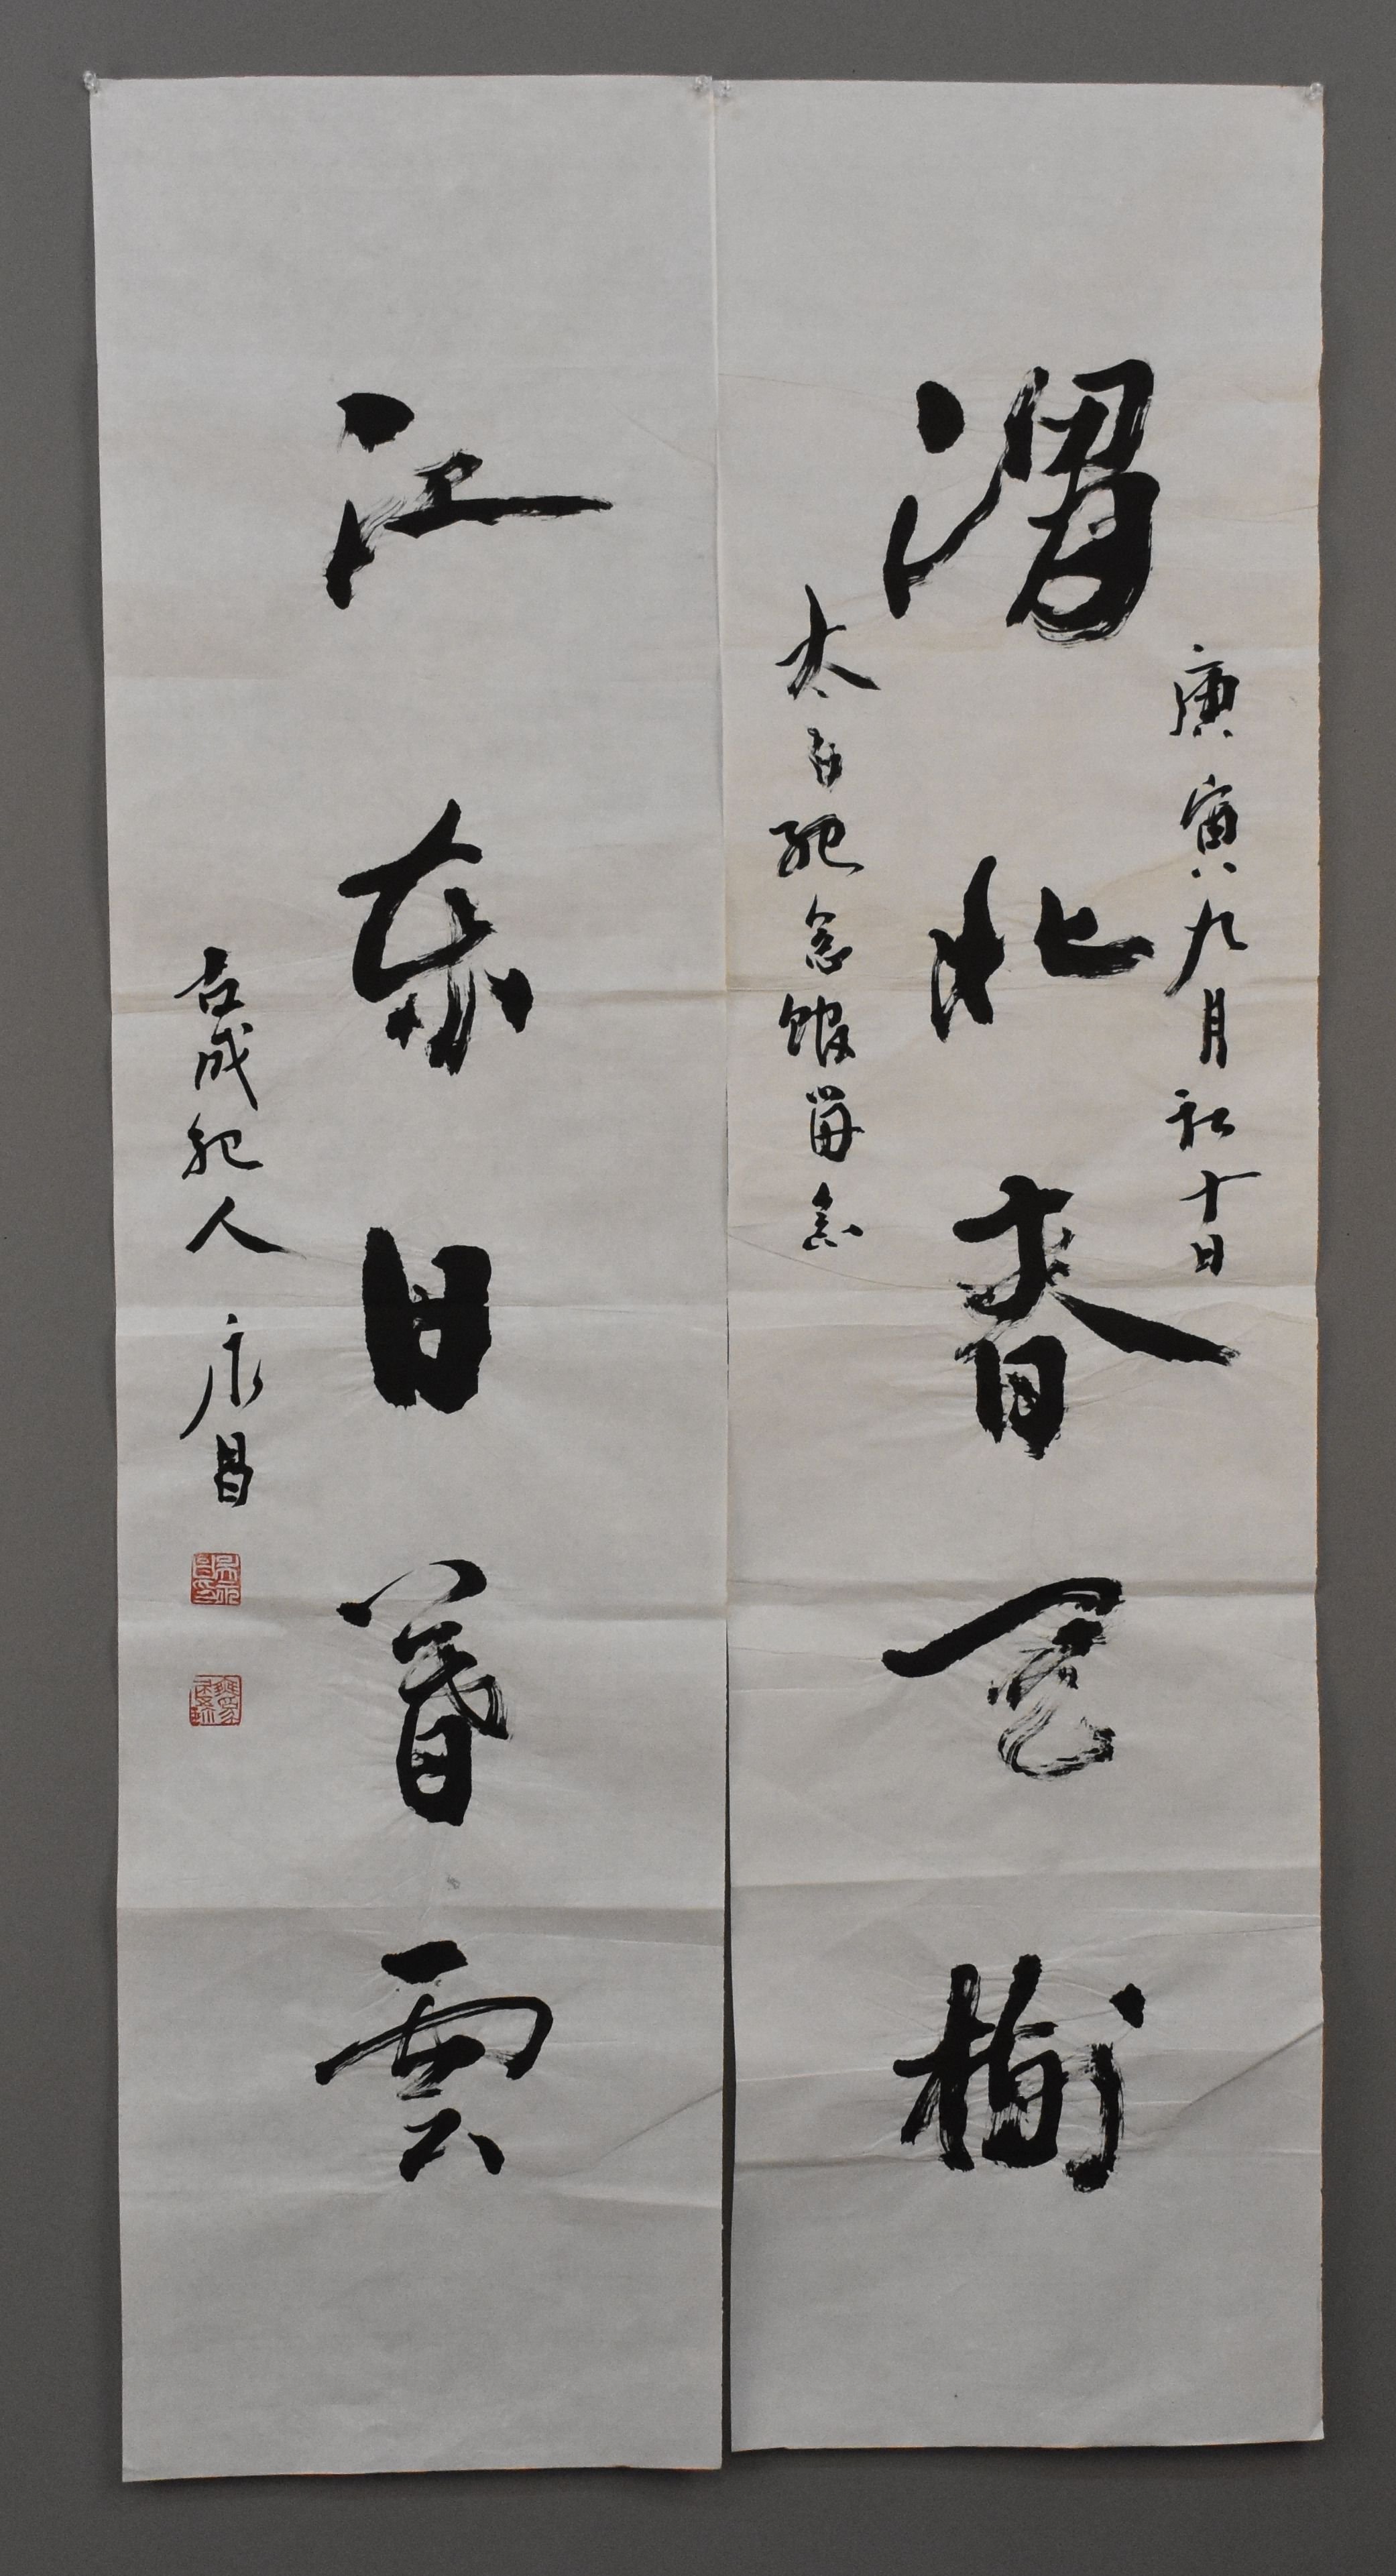 渭北春天樹
庚寅九月初十日
太白紀念館留念
江東日暮雲
古成紀人 永昌